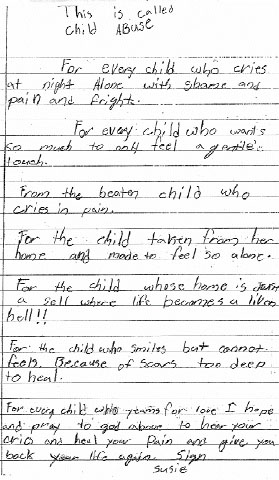 This is called
child ABUSE
For every child who cries
at night Alone with shame and
pain and fright.
For every child who wants
so much to only feel a gentle
touch.
From the beaten child who
cries in pain.
For the child taken from her
home and made to feel so alone.
For the child whose home is
a sell where life becomes a
hell!!
For the child who smiles but cannot
feel. Because of scars too deep
to heal.
For every child who yearns for love I hope
and pray to god above to hear your
cries and heal your Pain and give you
back your life again. Sign
Susie